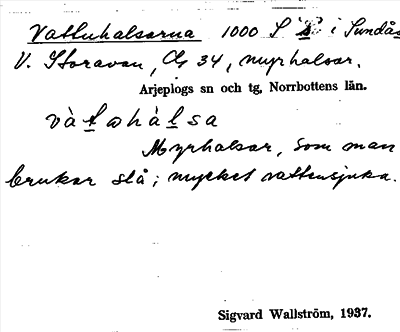 Vattuhalsarna 1000 S i Sundås
V. Storavan, Cg 34, myrhalsar.
Arjeplogs sn och tg, Norrbottens län.
vàtahàlsa
Myrhalsar, som man
brukar slå; mycket vattensjuka.
Sigvard Wallström, 1937.